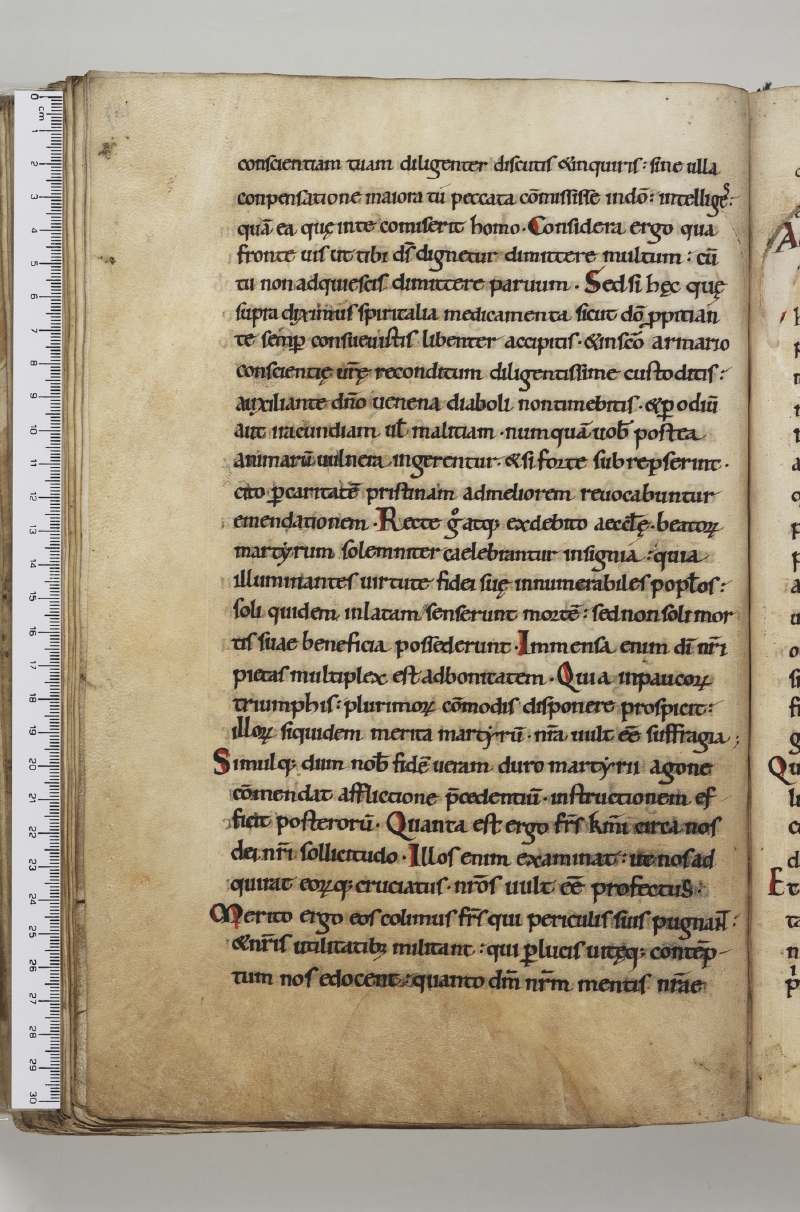 conscientiam tuam diligenter discutis &inquiris: sine ulla
conpensatione maiora tu peccata cōmisisse indō: intelliges.
quā ea quę inte comiserit homo. Considera ergo qua
fronte uis ut tibi ds̄ dignetur dimittere multum: cū
tu nonadquiescis dimittere paruum. Sedsi hęc quę
supra diximus spiritalia medicamenta sicut dō p̄pitian
te semp̄ consueuistis libenter accipitis. &inscō armario
conscientię ur̄ę reconditum diligentissime custoditis:
auxiliante dn̄o uenena diaboli nontimebitis. &p̄ odiū
aut iracundiam ut̄ malitiam. numquā uob̄ postea
animarū uulnera ingerentur. &siforte subrepserint.
cito p̄caritatē pristinam admeliorem reuocabuntur
emendationem. Recte gͦ atq; exdebito aeccłę. beatoꝝ
martyrum solemniter caelebrantur insignia: quia
illuminantes uirtute fidei suę innumerabiles popłos:
soli quidem inlatam senserunt mortē: sednonsoli mor
tis suae beneficia possederunt. Immensa enim dī nr̄i
pietas multiplex est adbonitatem. Quia inpaucoꝝ
triumphis: plurimoꝝ cōmodis disponere prospicit:
illoꝝ siquidem merita martyrū. nr̄a uult eē̄ suffragia;
Simulq; dum nob̄ fidē ueram duro martyrii agone
cōmendat afflictione p̄cedentiū. instructionem ef
ficit posterorū. Quanta est ergo fr̄s km̄i circa nos
dei nr̄i sollicitudo. Illos enim examinat: ut nos ad
quirat eoꝝq; cruciatus. nr̄os uult eē̄ profectus.
Merito ergo eos colimus fr̄s qui periculis suis pugnant:
&nr̄is utilitatib; militant: qui p̄ lucis uitęq; contēp
tum nos edocent: quanto dm̄ nr̄m mentis nr̄ae